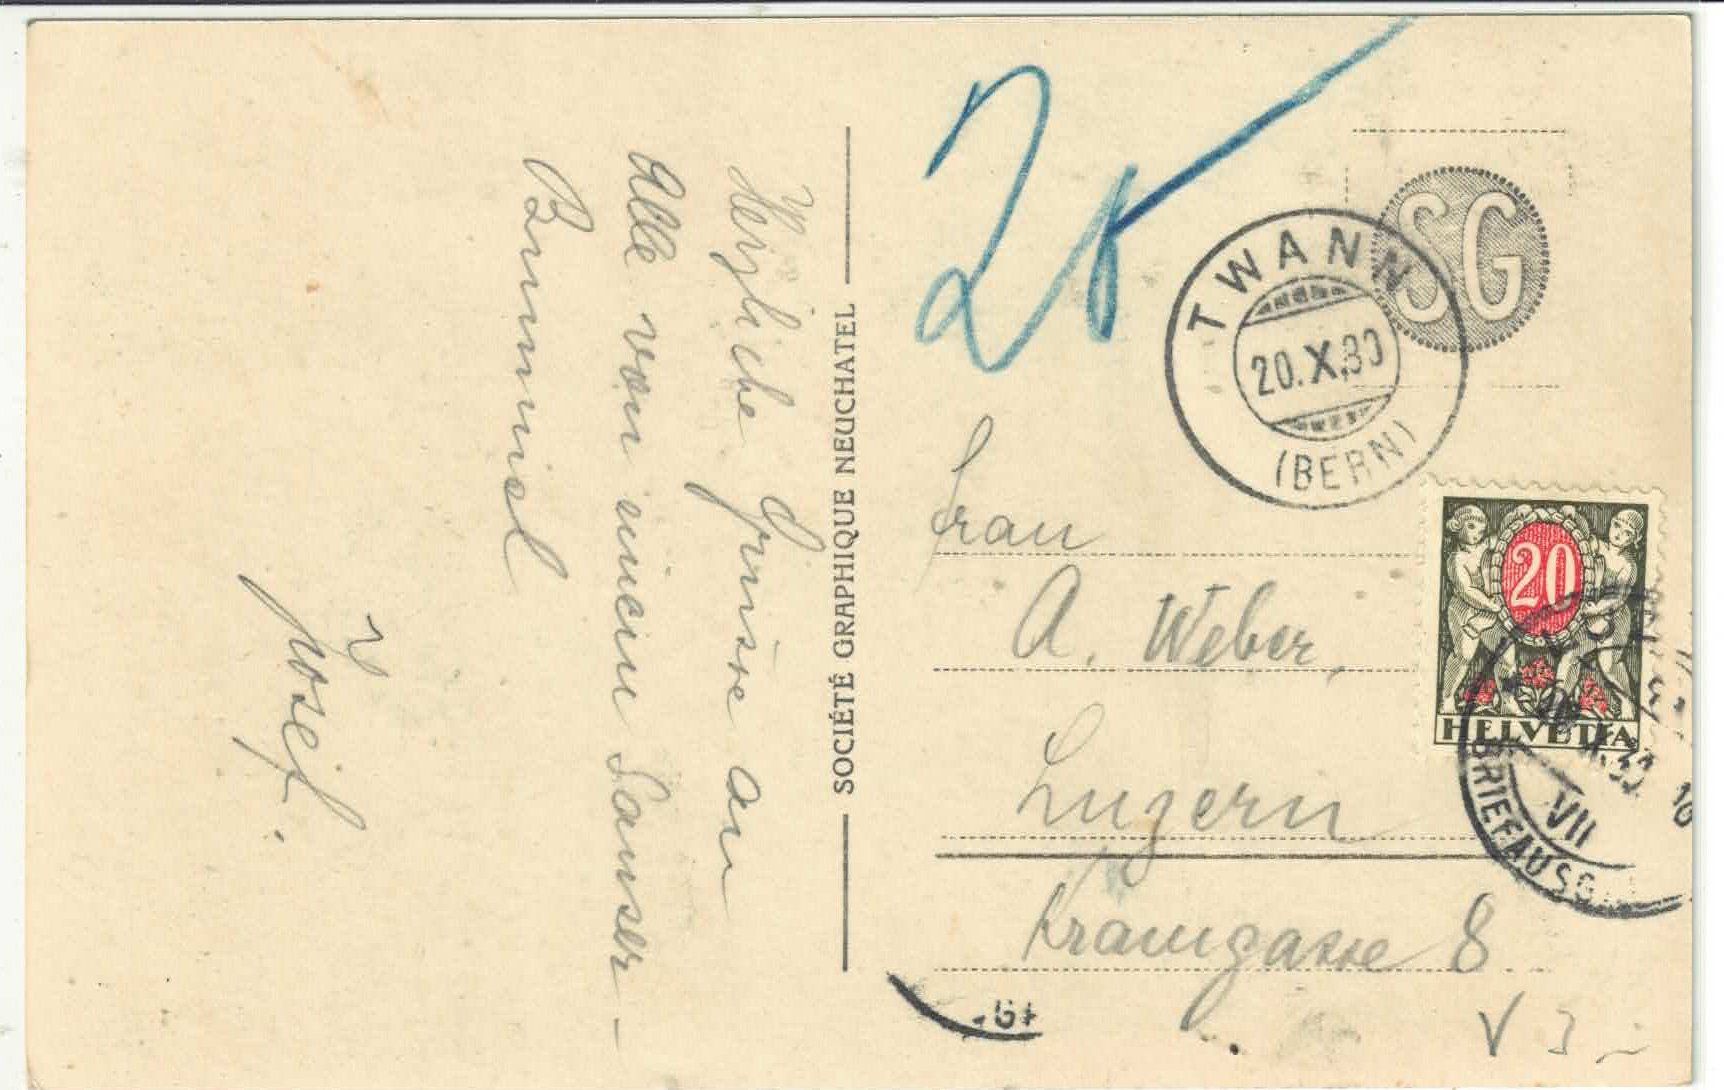 Herzliche Grüsse an
Alle vom einem Sauser-
Bummel
Josef.
SOCIÉTÉ GRAPHIQUE NEUCHATEL
20
SG
TWANN
20.X.30
(BERN)
20
HELVETIA
Frau
A. Weber,
Luzern
Kramgasse 8
VII
BRIEFAUSG